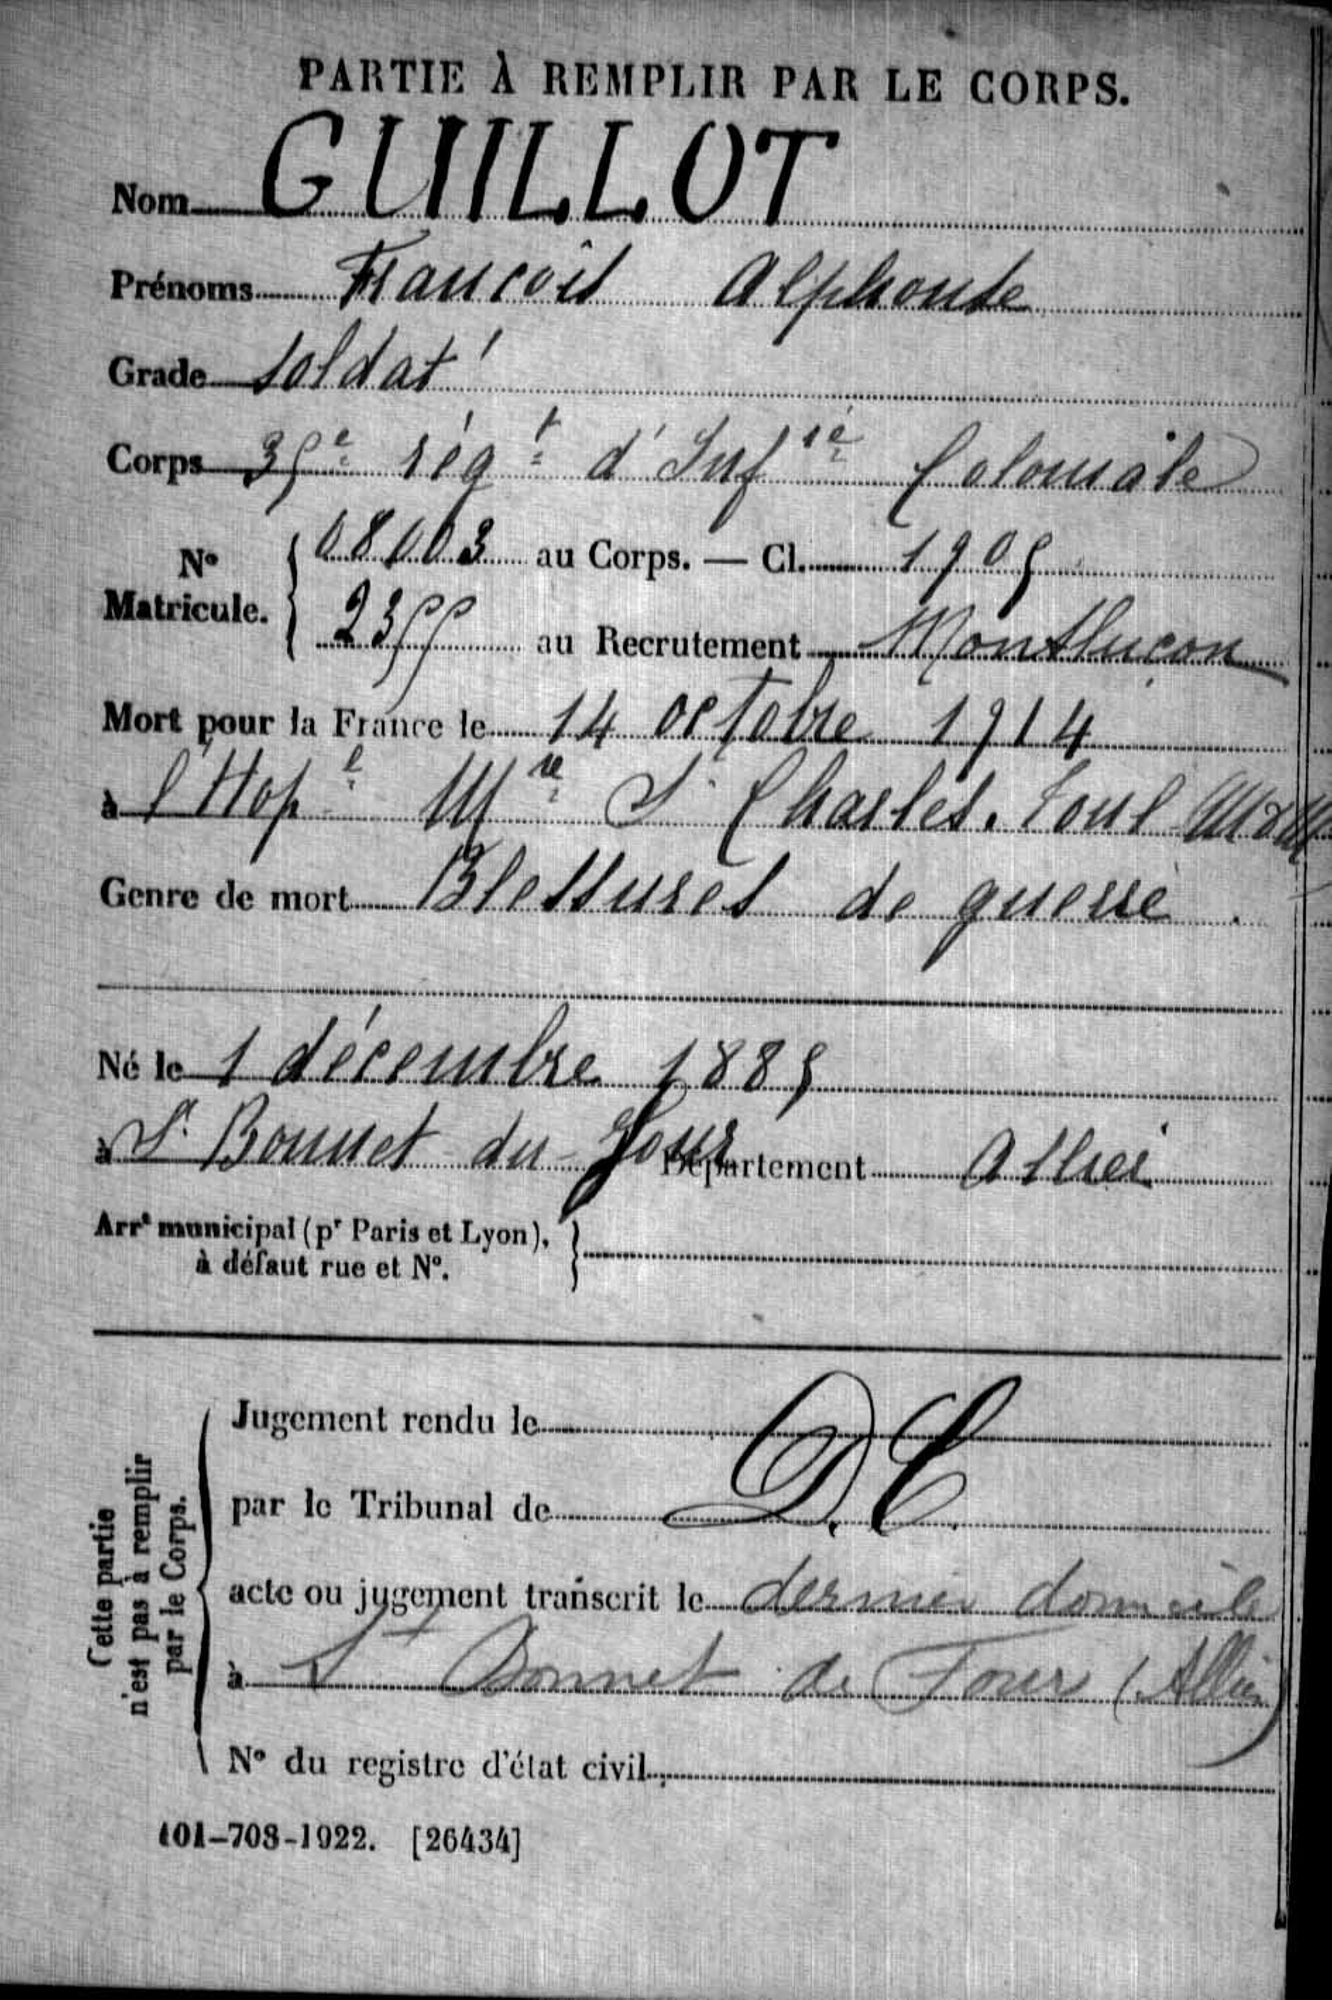 PARTIE À REMPLIR PAR LE CORPS.
Nom GUILLOT
Prénoms François Alphonse
Grade soldat
Corps 35e rég t d'Inf ie Coloniale
No Matricule. 08003 au Corps. — Cl. 1905
2355 au Recrutement Montluçon
Mort pour la France le 14 octobre 1914
à l'Hop l Mre St Charles. Toul M&M
Genre de mort Blessures de guerre.
Né le 1 décembre 1885
à St Bonnet du Four Département Allier
Arrt municipal (pr Paris et Lyon),
à défaut rue et No.
Cette partie
n'est pas à remplir
par le Corps.
Jugement rendu le
par le Tribunal de D.C.
acte ou jugement transcrit le dernier domicile
à St Bonnet de Four (Allier)
No du registre d'état civil
101-708-1922. [26434]